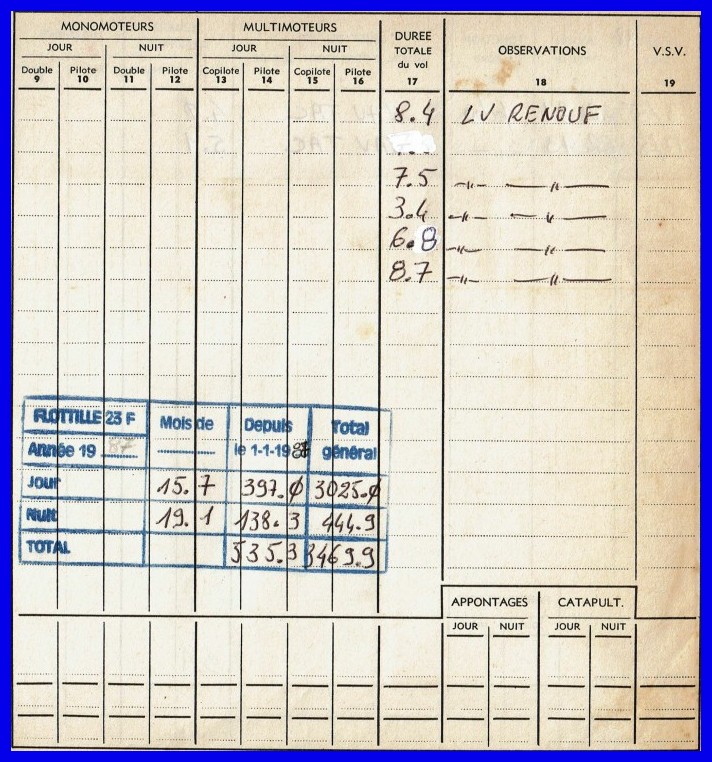 MONOMOTEURS MULTIMOTEURS DUREE TOTALE du vol OBSERVATIONS V.S.V.
JOUR NUIT JOUR NUIT
Double Pilote Double Pilote Copilote Pilote Copilote Pilote
9 10 11 12 13 14 15 16 17 18 19
8.4 LV RENOUF
7.5 -〃- —〃—
3.4 -〃- —〃—
6.8 -〃- —〃—
8.7 -〃- —〃—
FLOTTILLE 23 F Mois de Depuis Total
Année 19 87 ........... le 1-1-1987 général
Jour 15.7 397.0 3025.0
Nuit 19.1 138.3 444.9
TOTAL 535.3 3469.9
APPONTAGES CATAPULT.
JOUR NUIT JOUR NUIT